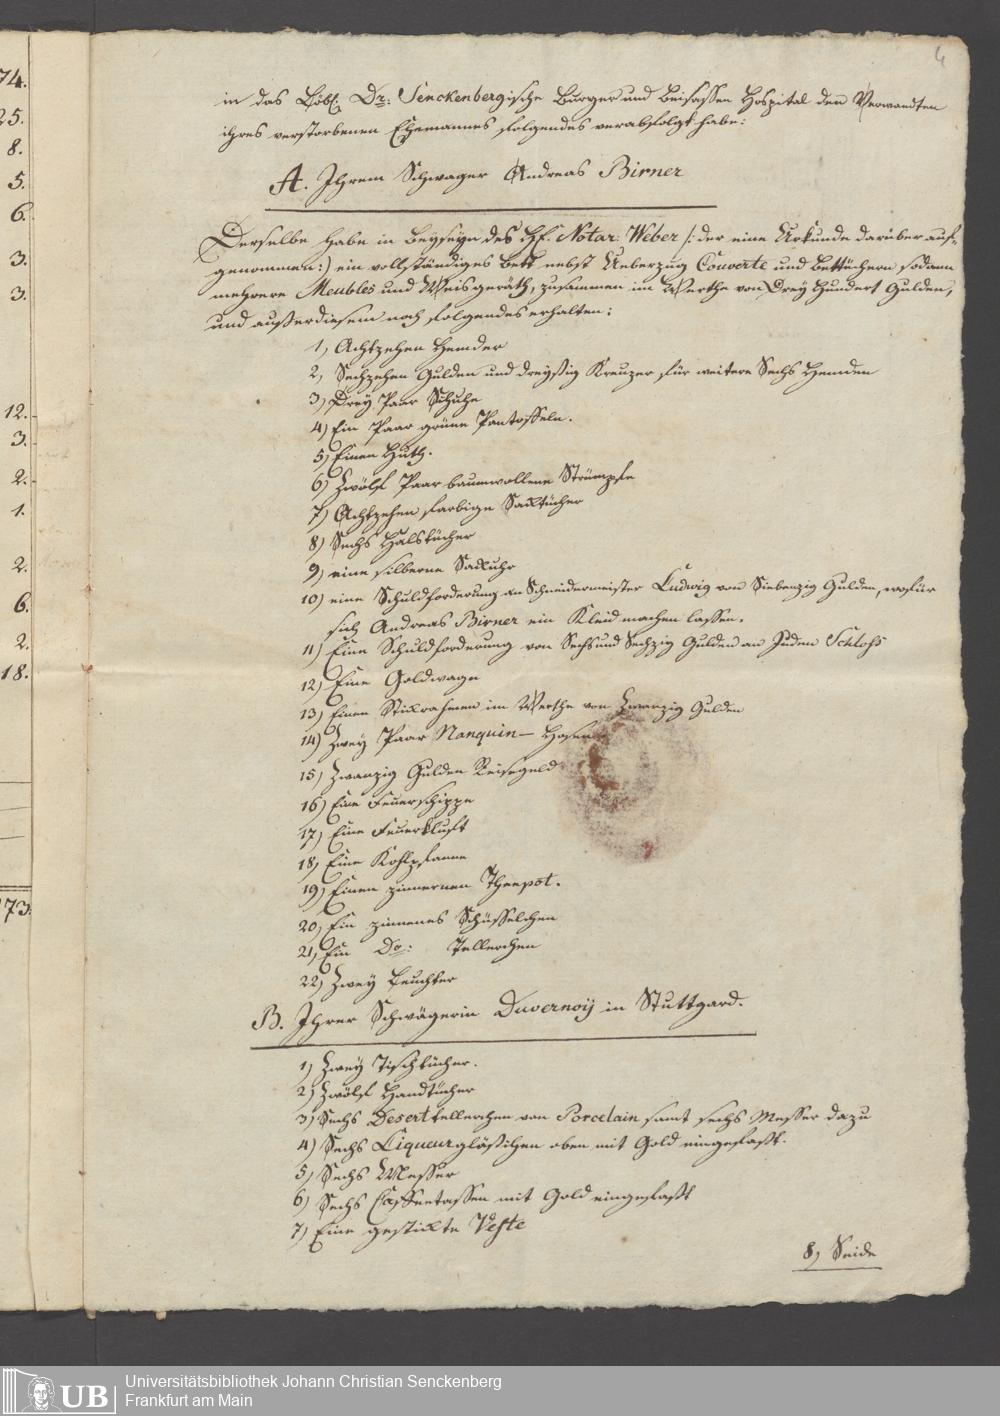 4
in das Löbl. Dr: Senckenbergische Burger und Beisassen Hospital den Verwandten
ihres verstorbenen Ehemannes folgendes verabfolgt habe:
A. Ihrem Schwager Andreas Birner
Derselbe habe in Beyseyn des H. Notar: Weber /: der eine Urkunde darüber auf-
genommen :/ ein vollständiges Bett nebst Ueberzug Couverte und Bettüchern sodann
mehrere Meubles und Weisgeräth, zusammen im Werthe von Drey Hundert Gulden,
und außerdiesem noch folgendes erhalten:
1) Achtzehen Hemder
2) Sechzehen Gulden und dreyßig Kreuzer für weitere Sechs Hemden
3) Drey Paar Schuhe
4) Ein Paar grüne Pantoffeln.
5) Einen Huth.
6) Zwölf Paar baumwollene Strümpfe
7) Achtzehen farbige Sacktücher
8) Sechs Halstücher
9) eine silberne Sackuhr
10) eine Schuldforderung an Schneidermeister Ludwig von Siebenzig Gulden, wofür
sich Andreas Birner ein Kleid machen lassen.
11) Eine Schuldforderung von Sechs und Sechzig Gulden an Juden Schloss
12) Eine Goldwage
13) Einen Stickrahmen im Werthe von Zwanzig Gulden
14) Zwey Paar Nanquin- Hosen
15) Zwanzig Gulden Reisegeld
16) Eine Feuerschippe
17) Eine Feuerkluft
18) Eine Kohlpfanne
19) Einen zinnernen Theepot.
20) Ein zinnenes Schüsselchen
21) Ein Do: Tellerchen
22) Zwey Leuchter
B. Ihrer Schwägerin Duvernoij in Stuttgard.
1) Zwey Tischtücher.
2) Zwölf Handtücher
3) Sechs Desert tellerchen von Porcelain samt sechs Messer dazu
4) Sechs Liqueur gläßchen oben mit Gold eingefaßt.
5) Sechs Messer
6) Sechs Caffeetassen mit Gold eingefaßt
7) Eine gestickte Veste
8) Seide
74.
25.
8.
5.
6.
3.
3.
12.
3.
2.
1.
2.
6.
2.
18.
73.
UB
Universitätsbibliothek Johann Christian Senckenberg
Frankfurt am Main